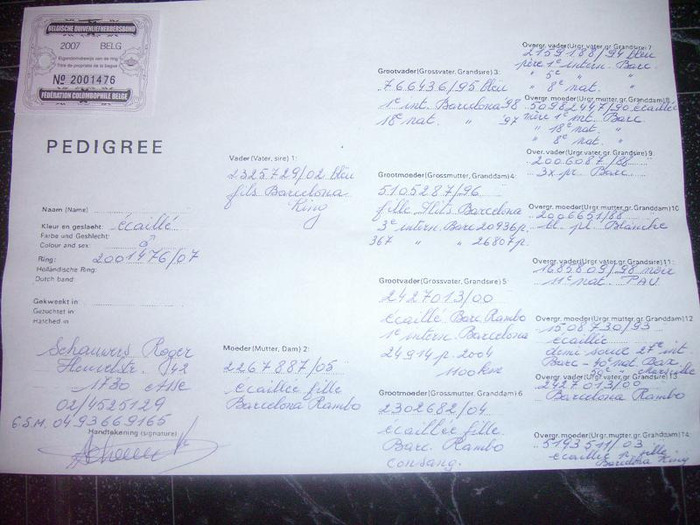 BELGISCHE DUIVENLIEFHEBBERSBOND
2007 BELG
Eigendomsbewijs van de ring
Titre de propriété de la bague
Nº 2001476
FÉDÉRATION COLOMBOPHILE BELGE
PEDIGREE
Naam (Name)
Kleur en geslacht: écaillé
Farbe und Geschlecht:
Colour and sex:
Ring: 2001476/07
Holländische Ring:
Dutch band:
Gekweekt in
Gezüchtet in
Hatched in
Schauwers Roger
42
1730 Asse
02/4525129
G.S.M. 0493669165
Handtekening (signature)
Vader (Vater, sire) 1:
2325729/02 bleu
fils Barcelona
King
Moeder (Mutter, Dam) 2:
2267887/05
écaillée fille
Barcelona Rambo
Grootvader (Grossvater, Grandsire) 3:
766436/95 bleu
1e int. Barcelona 98
18e nat. " 97
Grootmoeder (Grossmutter, Granddam) 4:
5105287/96
fille Barcelona
3e intern. Barc 20936 p.
367 " 26807 p.
Grootvader (Grossvater, Grandsire) 5:
2427013/00
écaillé Barc. Rambo
1e intern. Barcelona
24914 p. 2004
1100 km
Grootmoeder (Grossmutter, Granddam) 6
2302682/04
écaillée fille
Barc. Rambo
consang.
Overgr. vader (Urgr. vater, gr. Grandsire) 7
2159188/94 bleu
père 1e intern. Barc.
" 5e " "
" 8e nat. "
Overgr. moeder (Urgr. mutter, gr. Granddam) 8
5098244/90 écaillée
mère 1e int. Barc
" 18e nat. "
" 8e nat. "
Over. vader (Urgr. vater, gr. Grandsire) 9
2006087/88
3x pr. Barc.
Overgr. moeder (Urgr. mutter, gr. Granddam) 10
2006651/88
pl. Blanche
Overgr. vader (Urgr. vater, gr. Grandsire) 11:
1685809/98
11e nat. PAU.
Overgr. moeder (Urgr. mutter, gr. Granddam) 12
1508730/93
écaillée
demi soeur 27e int
Barc - nat Bar
Marseille
Overgr. vader (Urgr. vater, gr. Grandsire) 13
2427013/00
Barcelona Rambo
Overgr. moeder (Urgr. mutter, gr. Granddam) 14:
5193511/03
écaillée fille
Barcelona King